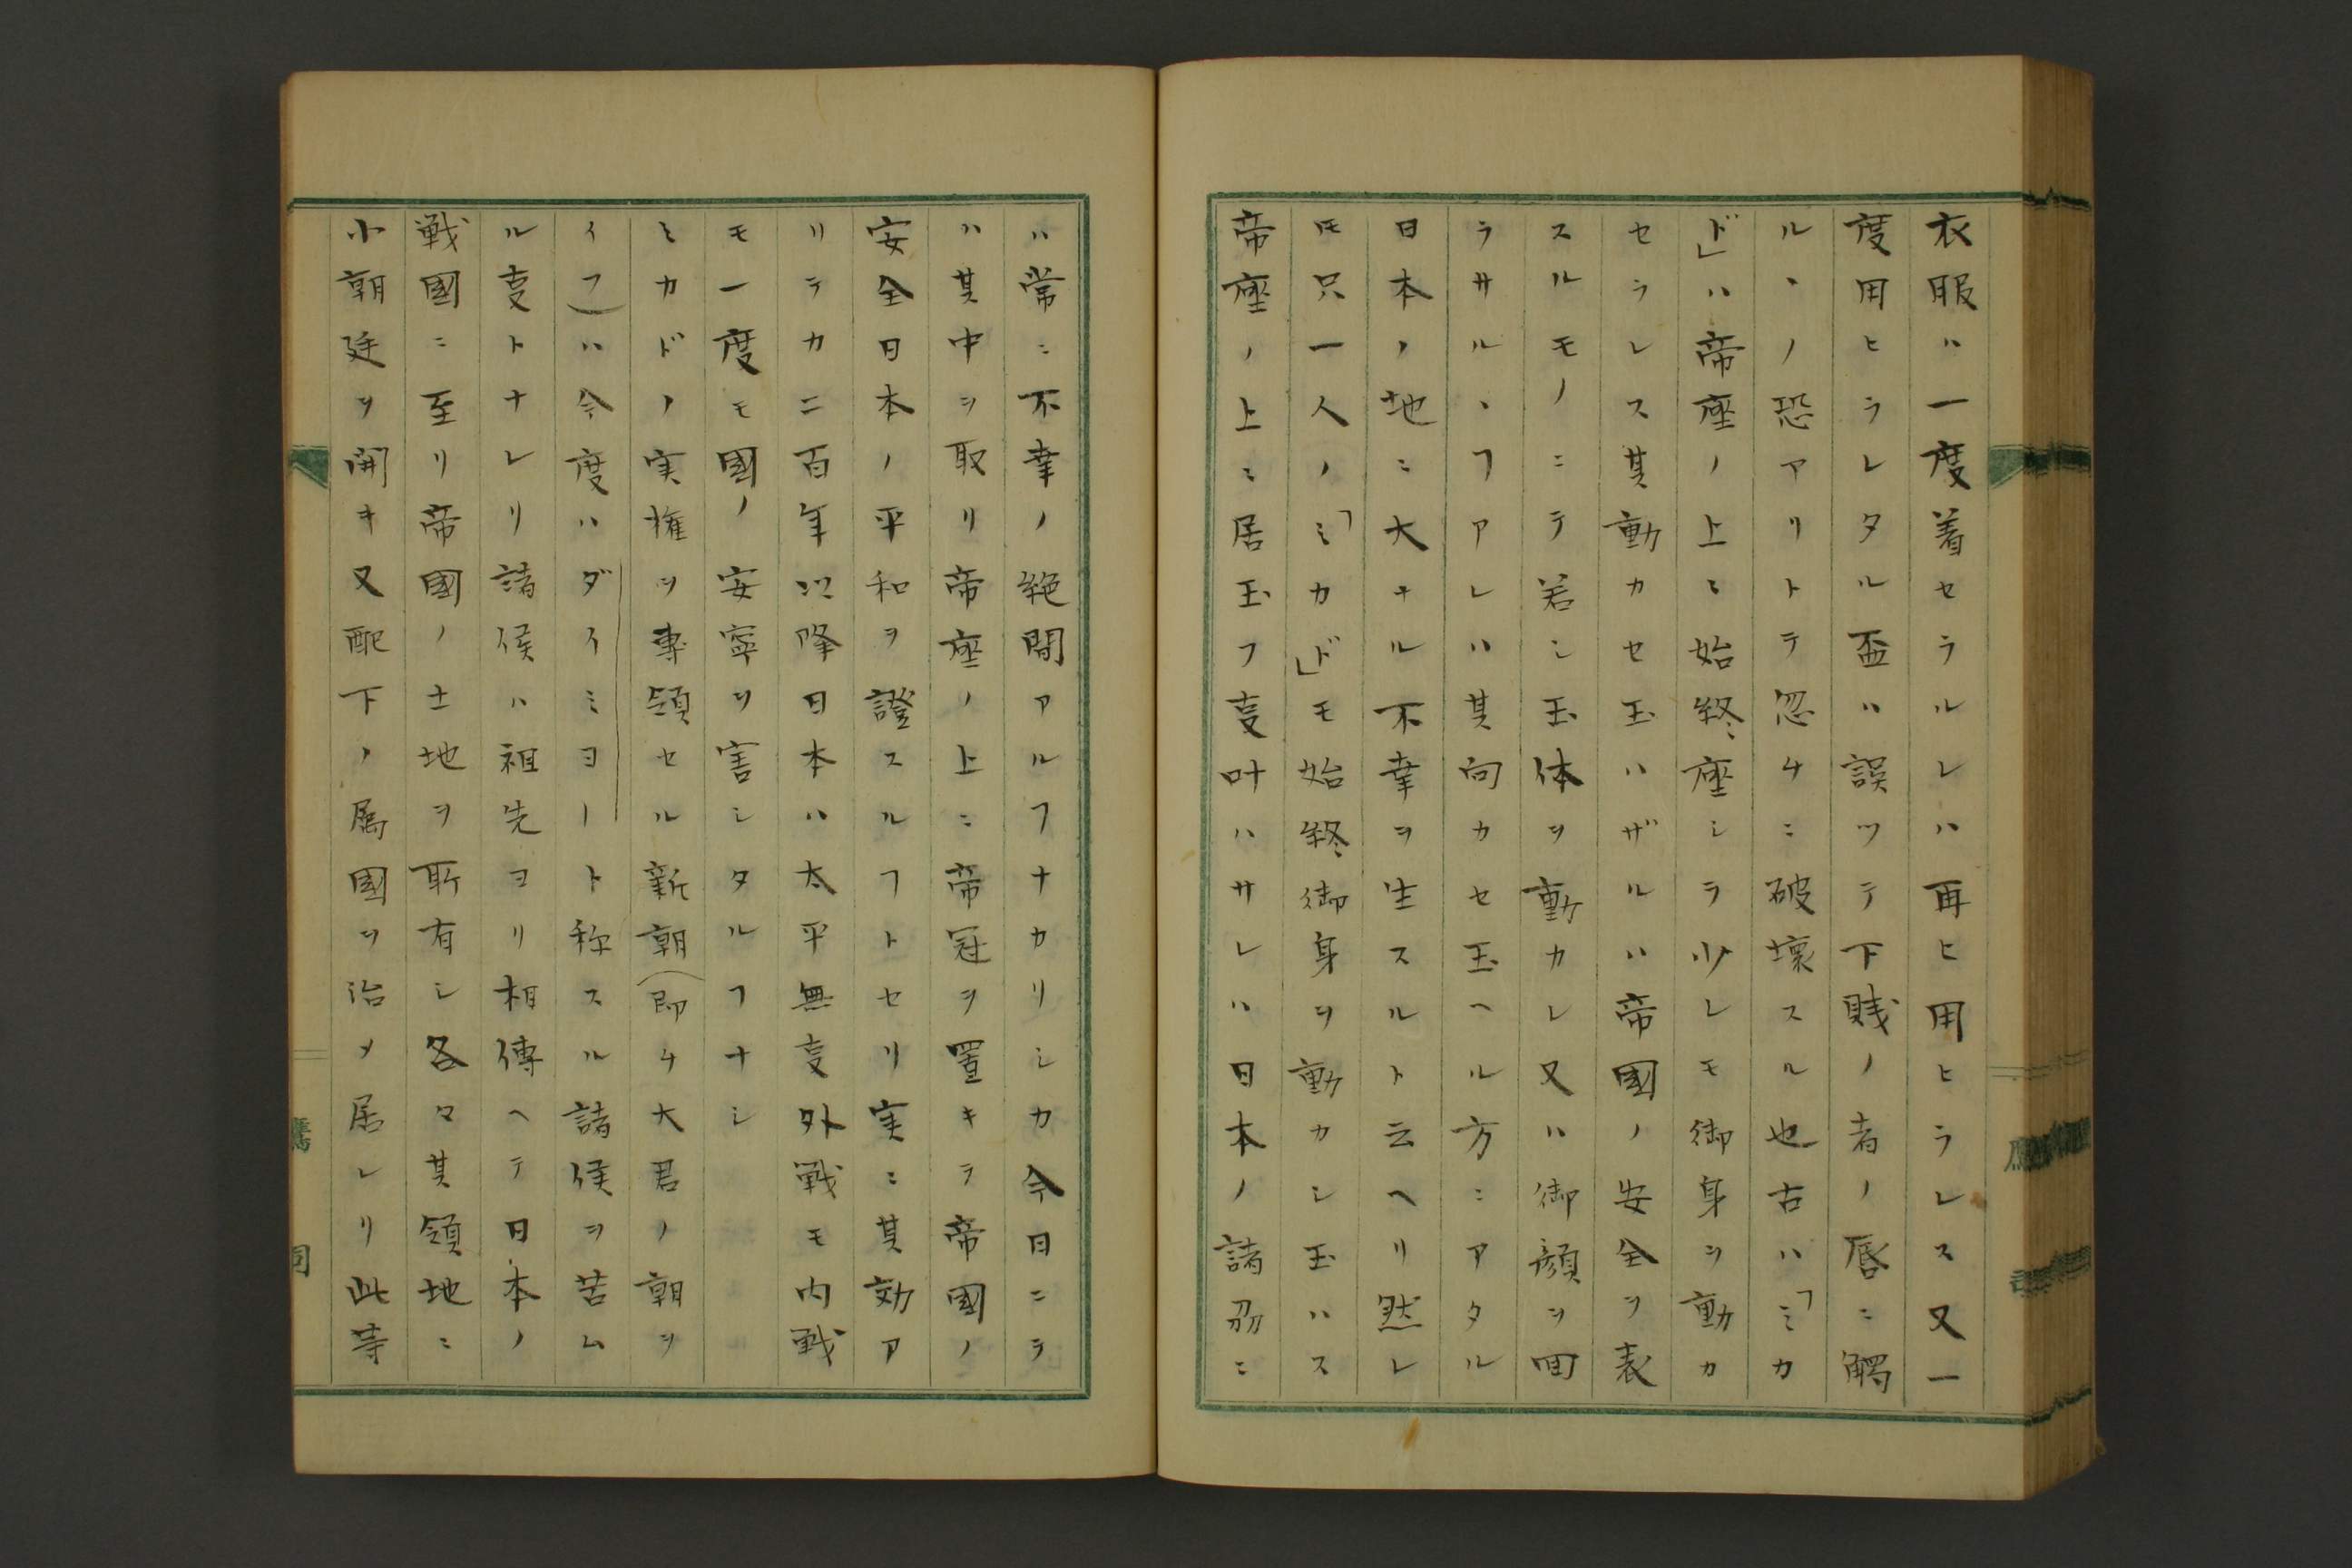 衣服ハ一度着セラルレハ再ヒ用ヒラレス又一
度用ヒラレタル盃ハ誤ツテ下賎ノ者ノ唇ニ觸
ルヽノ恐アリトテ忽チニ破壊スル也古ハ「ミカ
ド」ハ帝座ノ上ミ始終座シテ少レモ御身ヲ動カ
セラレス其動カセ玉ハザルハ帝國ノ安全ヲ表
スルモノニテ若シ玉体ヲ動カレ又ハ御顔ヲ回
ラサルヽヿアレハ其向カセ玉ヘル方ニアタル
日本ノ地ニ大ナル不幸ヲ生スルト云ヘリ然レ
モ只一人ノ「ミカド」モ始終御身ヲ動カシ玉ハス
帝座ノ上ミ居玉フ㕝叶ハサレハ日本ノ諸刕ニ
ハ常ニ不幸ノ絶間アルヿナカリシカ今日ニテ
ハ其中ヲ取リ帝座ノ上ニ帝冠ヲ置キテ帝國ノ
安全日本ノ平和ヲ證スルヿトセリ実ニ其効ア
リテカ二百年以降日本ハ太平無㕝外戦モ内戦
モ一度モ國ノ安寧ヲ害シタルヿナシ
ミカドノ実権ヲ專領セル新朝(即チ大君ノ朝ヲ
イフ)ハ今度ハダイミヨート称スル諸侯ヲ苦ム
ル㕝トナレリ諸侯ハ祖先ヨリ相傳ヘテ日本ノ
戦國ニ至リ帝國ノ土地ヲ所有シ各々其領地ニ
小朝廷ヲ開キ又配下ノ属國ヲ治メ居レリ此等